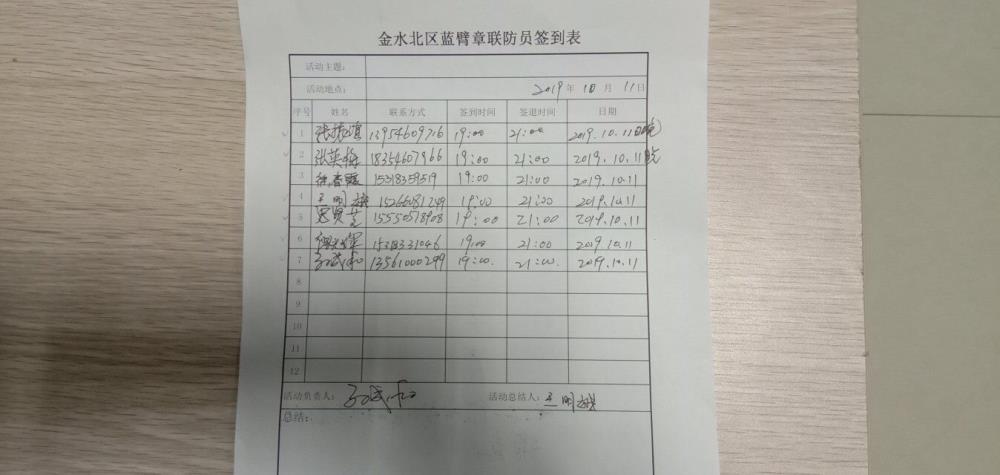 金水北区蓝臂章联防员签到表
活动主题:
活动地点: 2019年 10月 11日
序号 姓名 联系方式 签到时间 签退时间 日期
1 张振鸿 13954609716 19:00 21:00 2019.10.11
2 张英梅 18354607966 19:00 21:00 2019.10.11
3 徐香霞 15318359519 19:00 21:00 2019.10.11
4 王明 15266081299 19:00 21:00 2019.10.11
5 15550578908 19:00 21:00 2019.10.11
6 15318331046 19:00 21:00 2019.10.11
7 13561000299 19:00. 21:00. 2019.10.11
8
9
10
11
12
活动负责人: 活动总结人: 王明
总结: